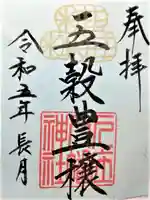 奉拝
五穀豊穣
令和五年 長月